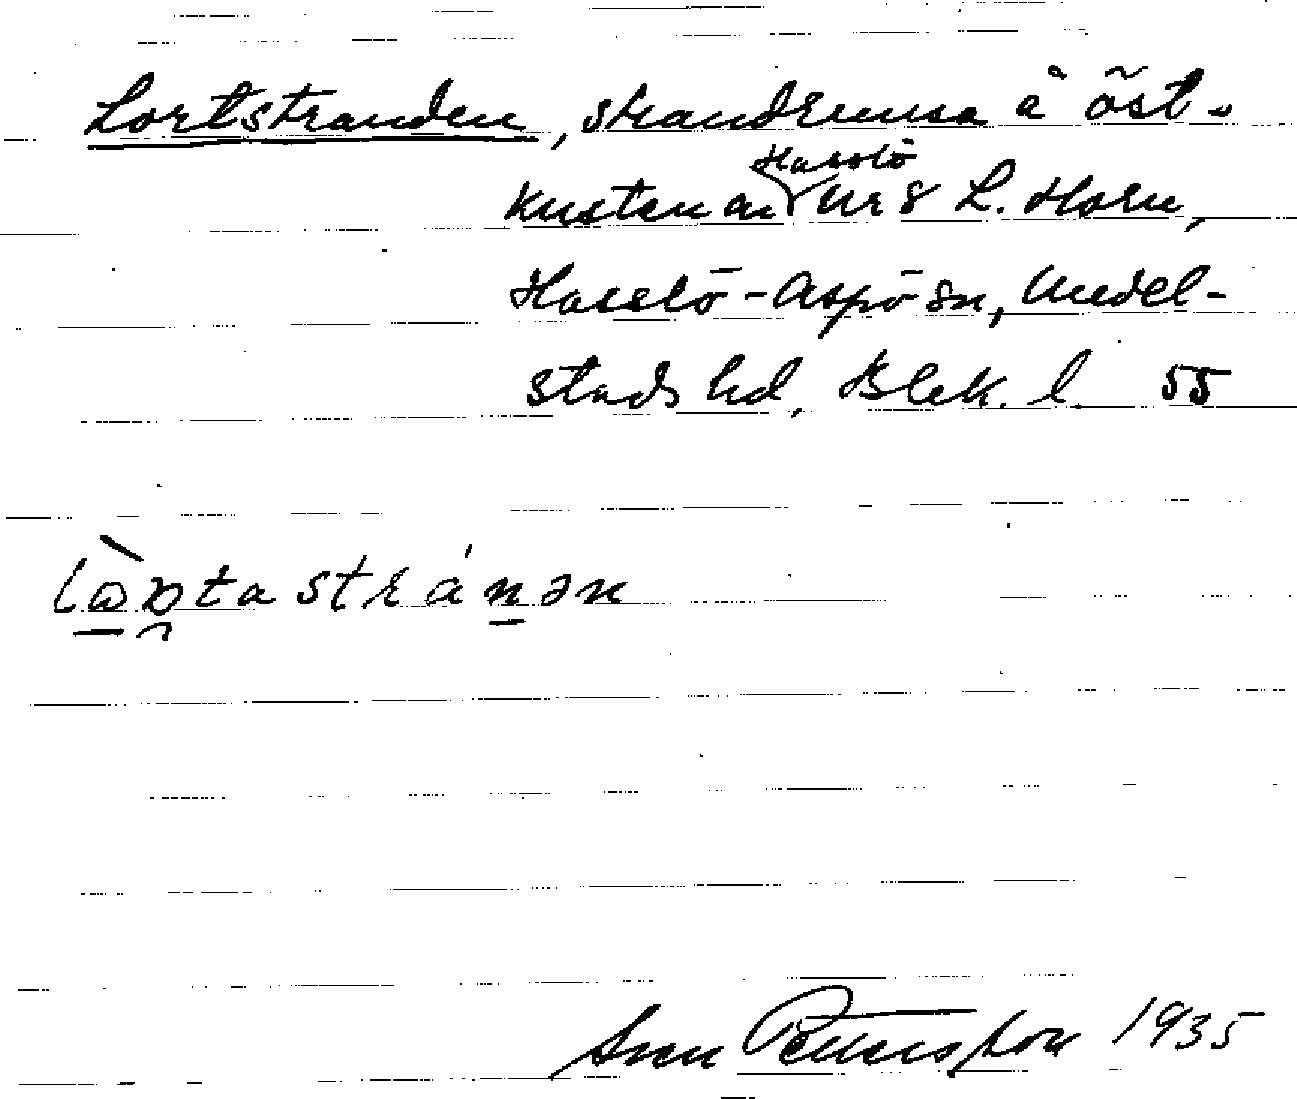 Lortstranden, strandremsa å öst-
kusten av Hasslö nr 8 L. Horn,
Hasslö-Aspö sn, Medel-
stads hd, Blek. l. 55
Sven Petersson 1935